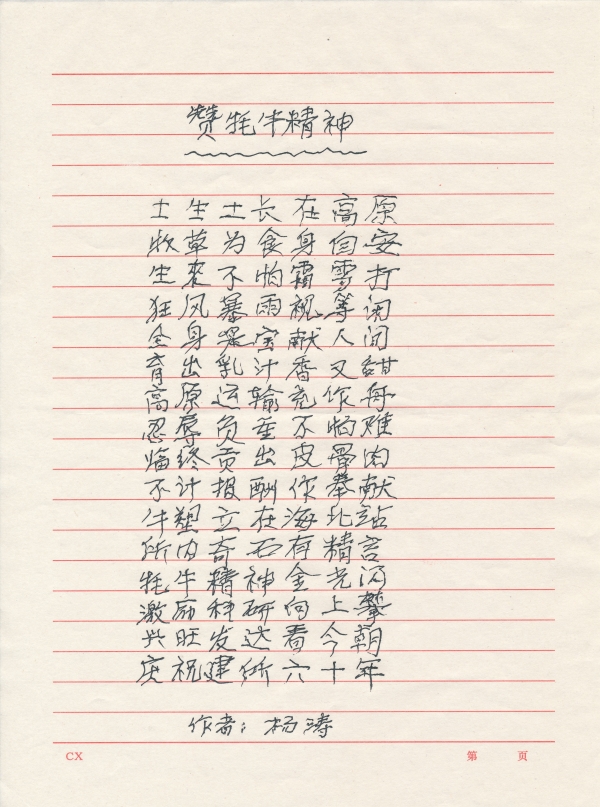 赞牦牛精神
土生土长在高原
牧草为食身自安
生来不怕霜雪打
狂风暴雨视等闲
全身是宝献人间
育出乳汁香又甜
高原运输充作舟
忍辱负重不怕难
临终贡出皮骨肉
不计报酬作奉献
牛塑立在海北站
所内奇石有精言
牦牛精神金光闪
激励科研向上攀
兴旺发达看今朝
庆祝建所六十年
作者：杨涛
CX
第 页